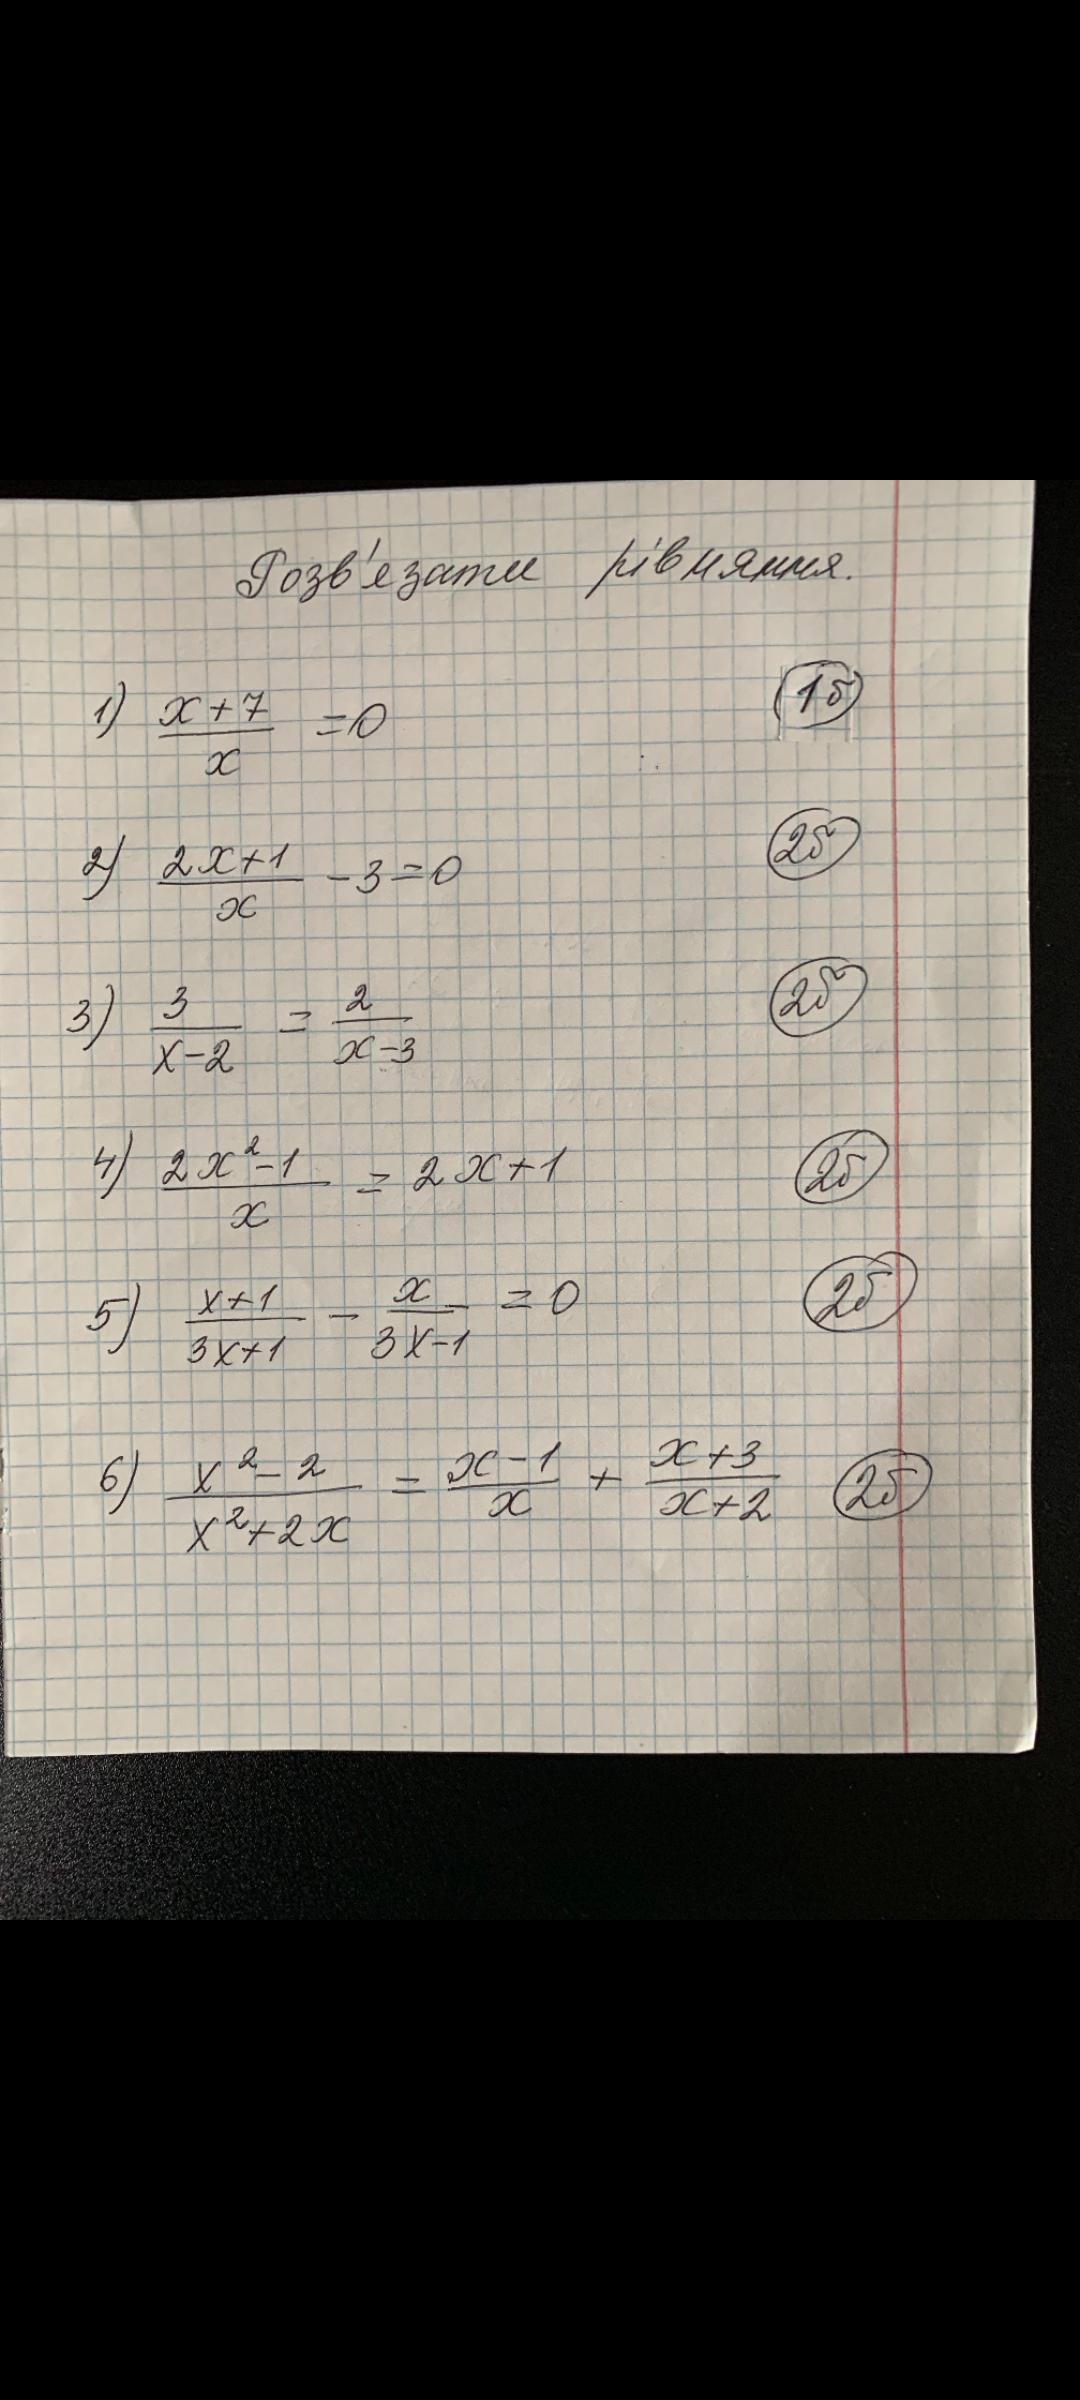 Розв'язати рівняння.
1) (x+7)/x = 0 (1б)
2) (2x+1)/x - 3 = 0 (2б)
3) 3/(x-2) = 2/(x-3) (2б)
4) (2x²-1)/x = 2x+1 (2б)
5) (x+1)/(3x+1) - x/(3x-1) = 0 (2б)
6) (x²-2)/(x²+2x) = (x-1)/x + (x+3)/(x+2) (2б)